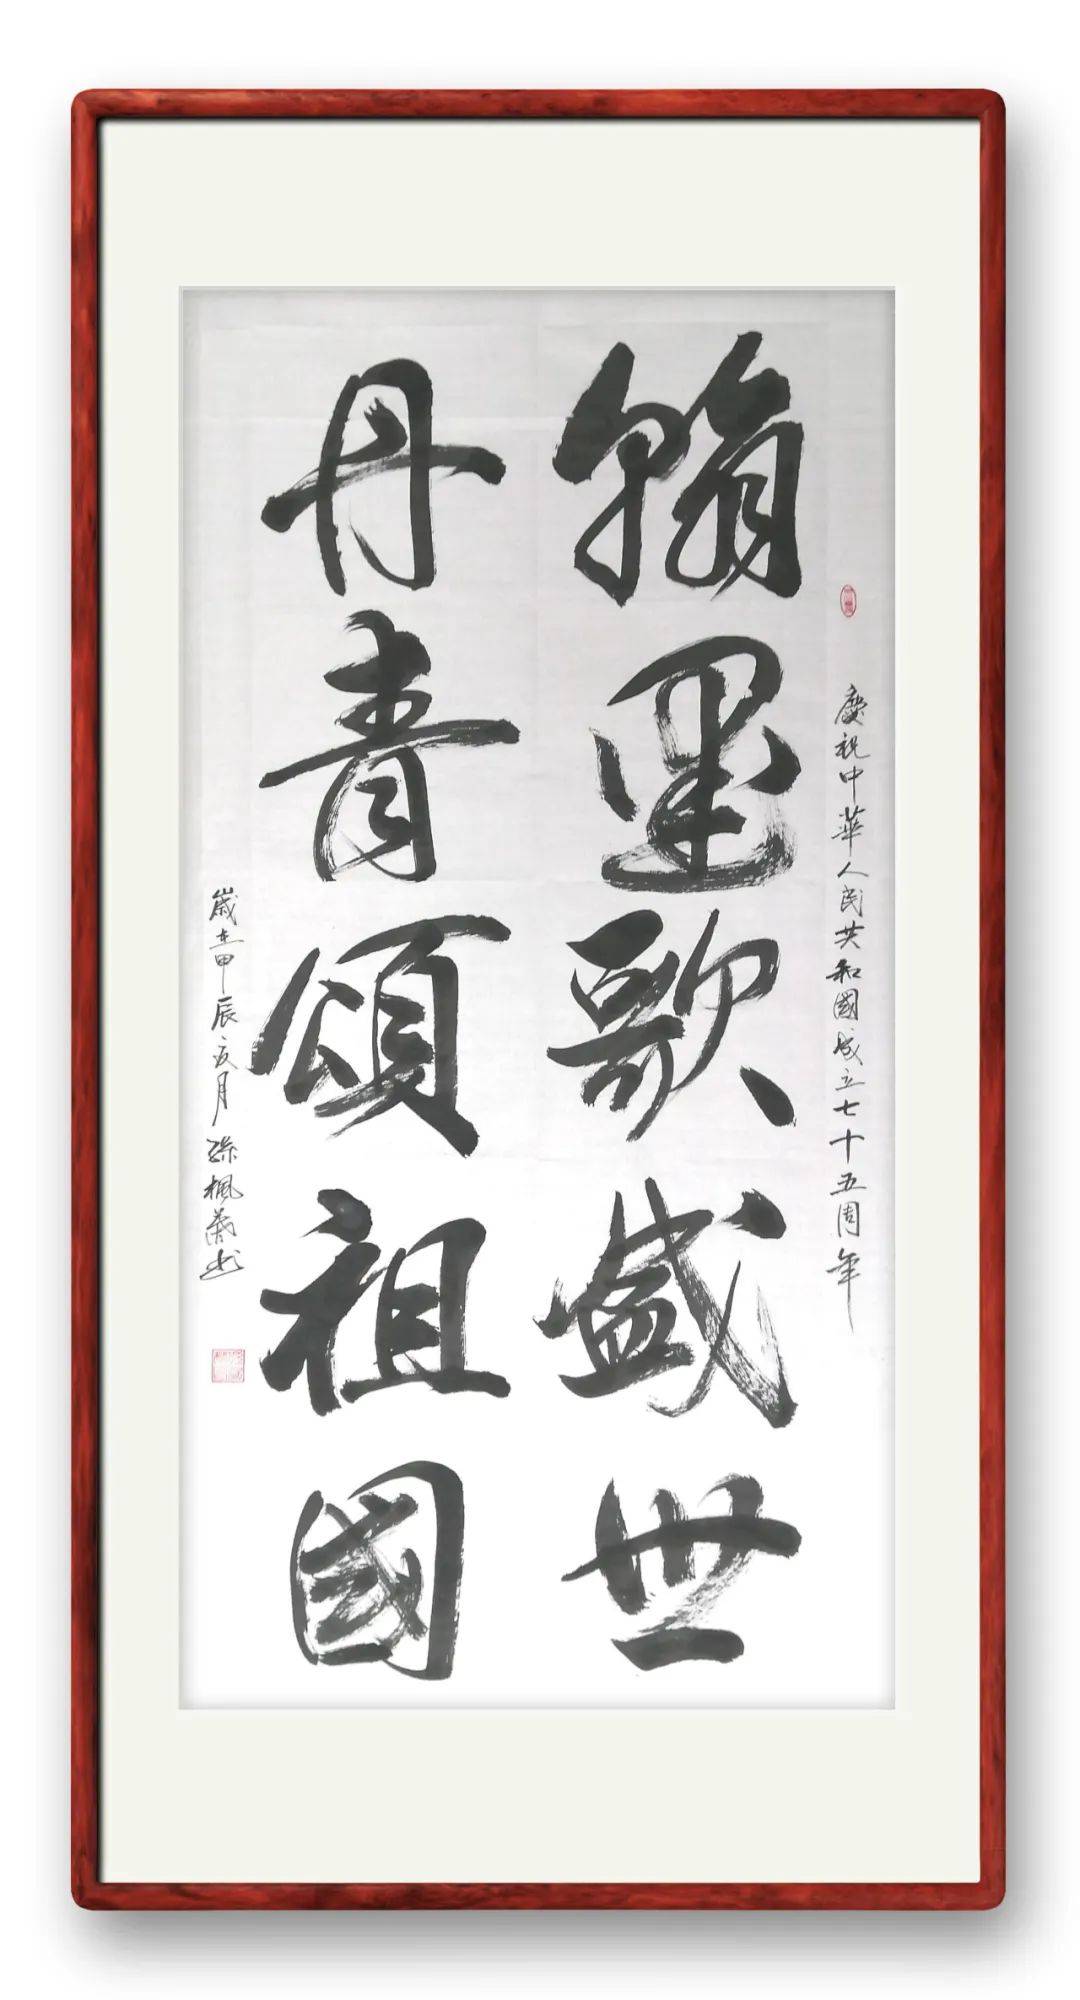 慶祝中華人民共和國成立七十五周年
翰墨歌盛世
丹青頌祖國
歲在甲辰 月 孫楓 书